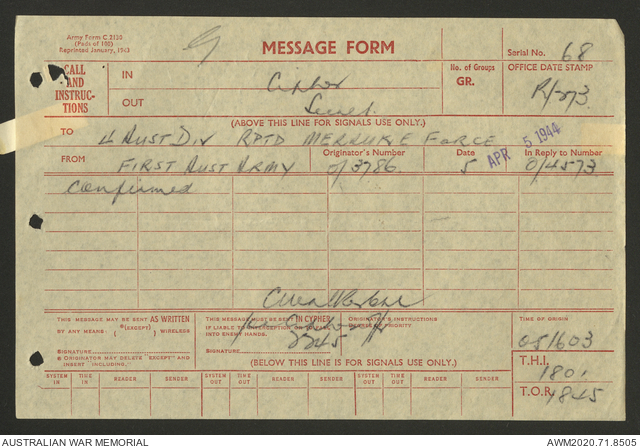 Army Form C.2130
(Pads of 100)
Reprinted January, 1943
MESSAGE FORM
Serial No. 68
CALL AND INSTRUCTIONS
IN
Cipher
No. of Groups
GR.
OFFICE DATE STAMP
OUT
Secret
R/273
(ABOVE THIS LINE FOR SIGNALS USE ONLY.)
TO 4 AUST DIV RPTD MERAUKE FORCE
5 APR 1944
FROM FIRST AUST ARMY
Originator's Number
0/3786
Date
5
In Reply to Number
0/4573
Confirmed
THIS MESSAGE MAY BE SENT AS WRITTEN
BY ANY MEANS. (EXCEPT) WIRELESS
SIGNATURE
ORIGINATOR MAY DELETE "EXCEPT" AND
INSERT "INCLUDING."
THIS MESSAGE MUST BE SENT IN CYPHER
IF LIABLE TO INTERCEPTION OR TO FALL
INTO ENEMY HANDS.
2245
SIGNATURE
ORIGINATOR'S INSTRUCTIONS
DEGREE OF PRIORITY
TIME OF ORIGIN
051603
T.H.I.
1801
T.O.R. 1845
(BELOW THIS LINE IS FOR SIGNALS USE ONLY.)
SYSTEM IN TIME IN READER SENDER SYSTEM OUT TIME OUT READER SENDER SYSTEM OUT TIME OUT READER SENDER
AUSTRALIAN WAR MEMORIAL
AWM2020.71.8505